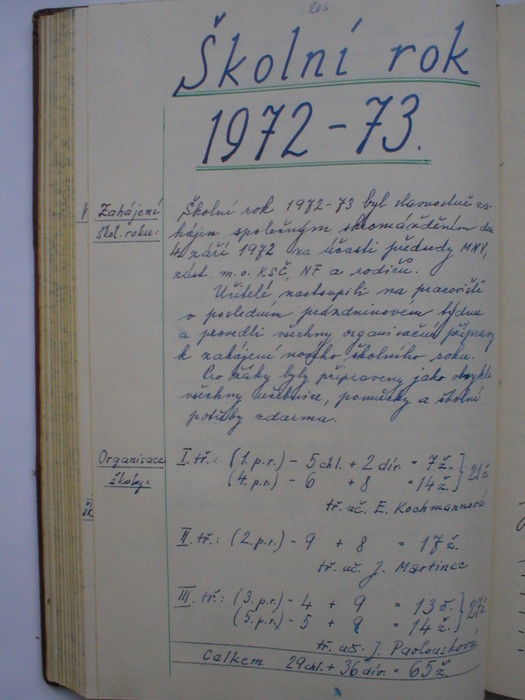 203
Školní rok
1972-73.
Zahájení
škol. roku:
Školní rok 1972-73 byl slavnostně za-
hájen společným shromážděním dne
4. září 1972 za účasti předsedy MNV,
zást. m.o. KSČ, NF a rodičů.
Učitelé nastoupili na pracoviště
v posledním prázdninovém týdnu
a provedli všechny organisační přípravy
k zahájení nového školního roku.
Pro žáky byly připraveny jako obvykle
všechny učebnice, pomůcky a školní
potřeby zdarma.
Organisace
školy:
I. tř.: (1. p.r.) - 5 chl. + 2 div. = 7 ž. } 21 ž.
(4. p.r.) - 6 + 8 = 14 ž.
tř. uč. E. Kochmannová
II. tř.: (2. p.r.) - 9 + 8 = 17 ž.
tř. uč. J. Martinec
III. tř.: (3. p.r.) - 4 + 9 = 13 ž. } 27 ž
(5. p.r.) - 5 + 9 = 14 ž.
tř. uč. J. Pavlousková
Celkem 29 chl. + 36 div. = 65 ž.